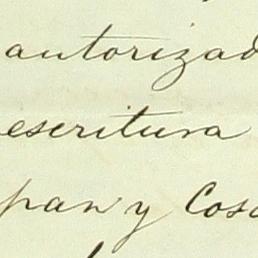 autorizad
escritura
pan y Cosa